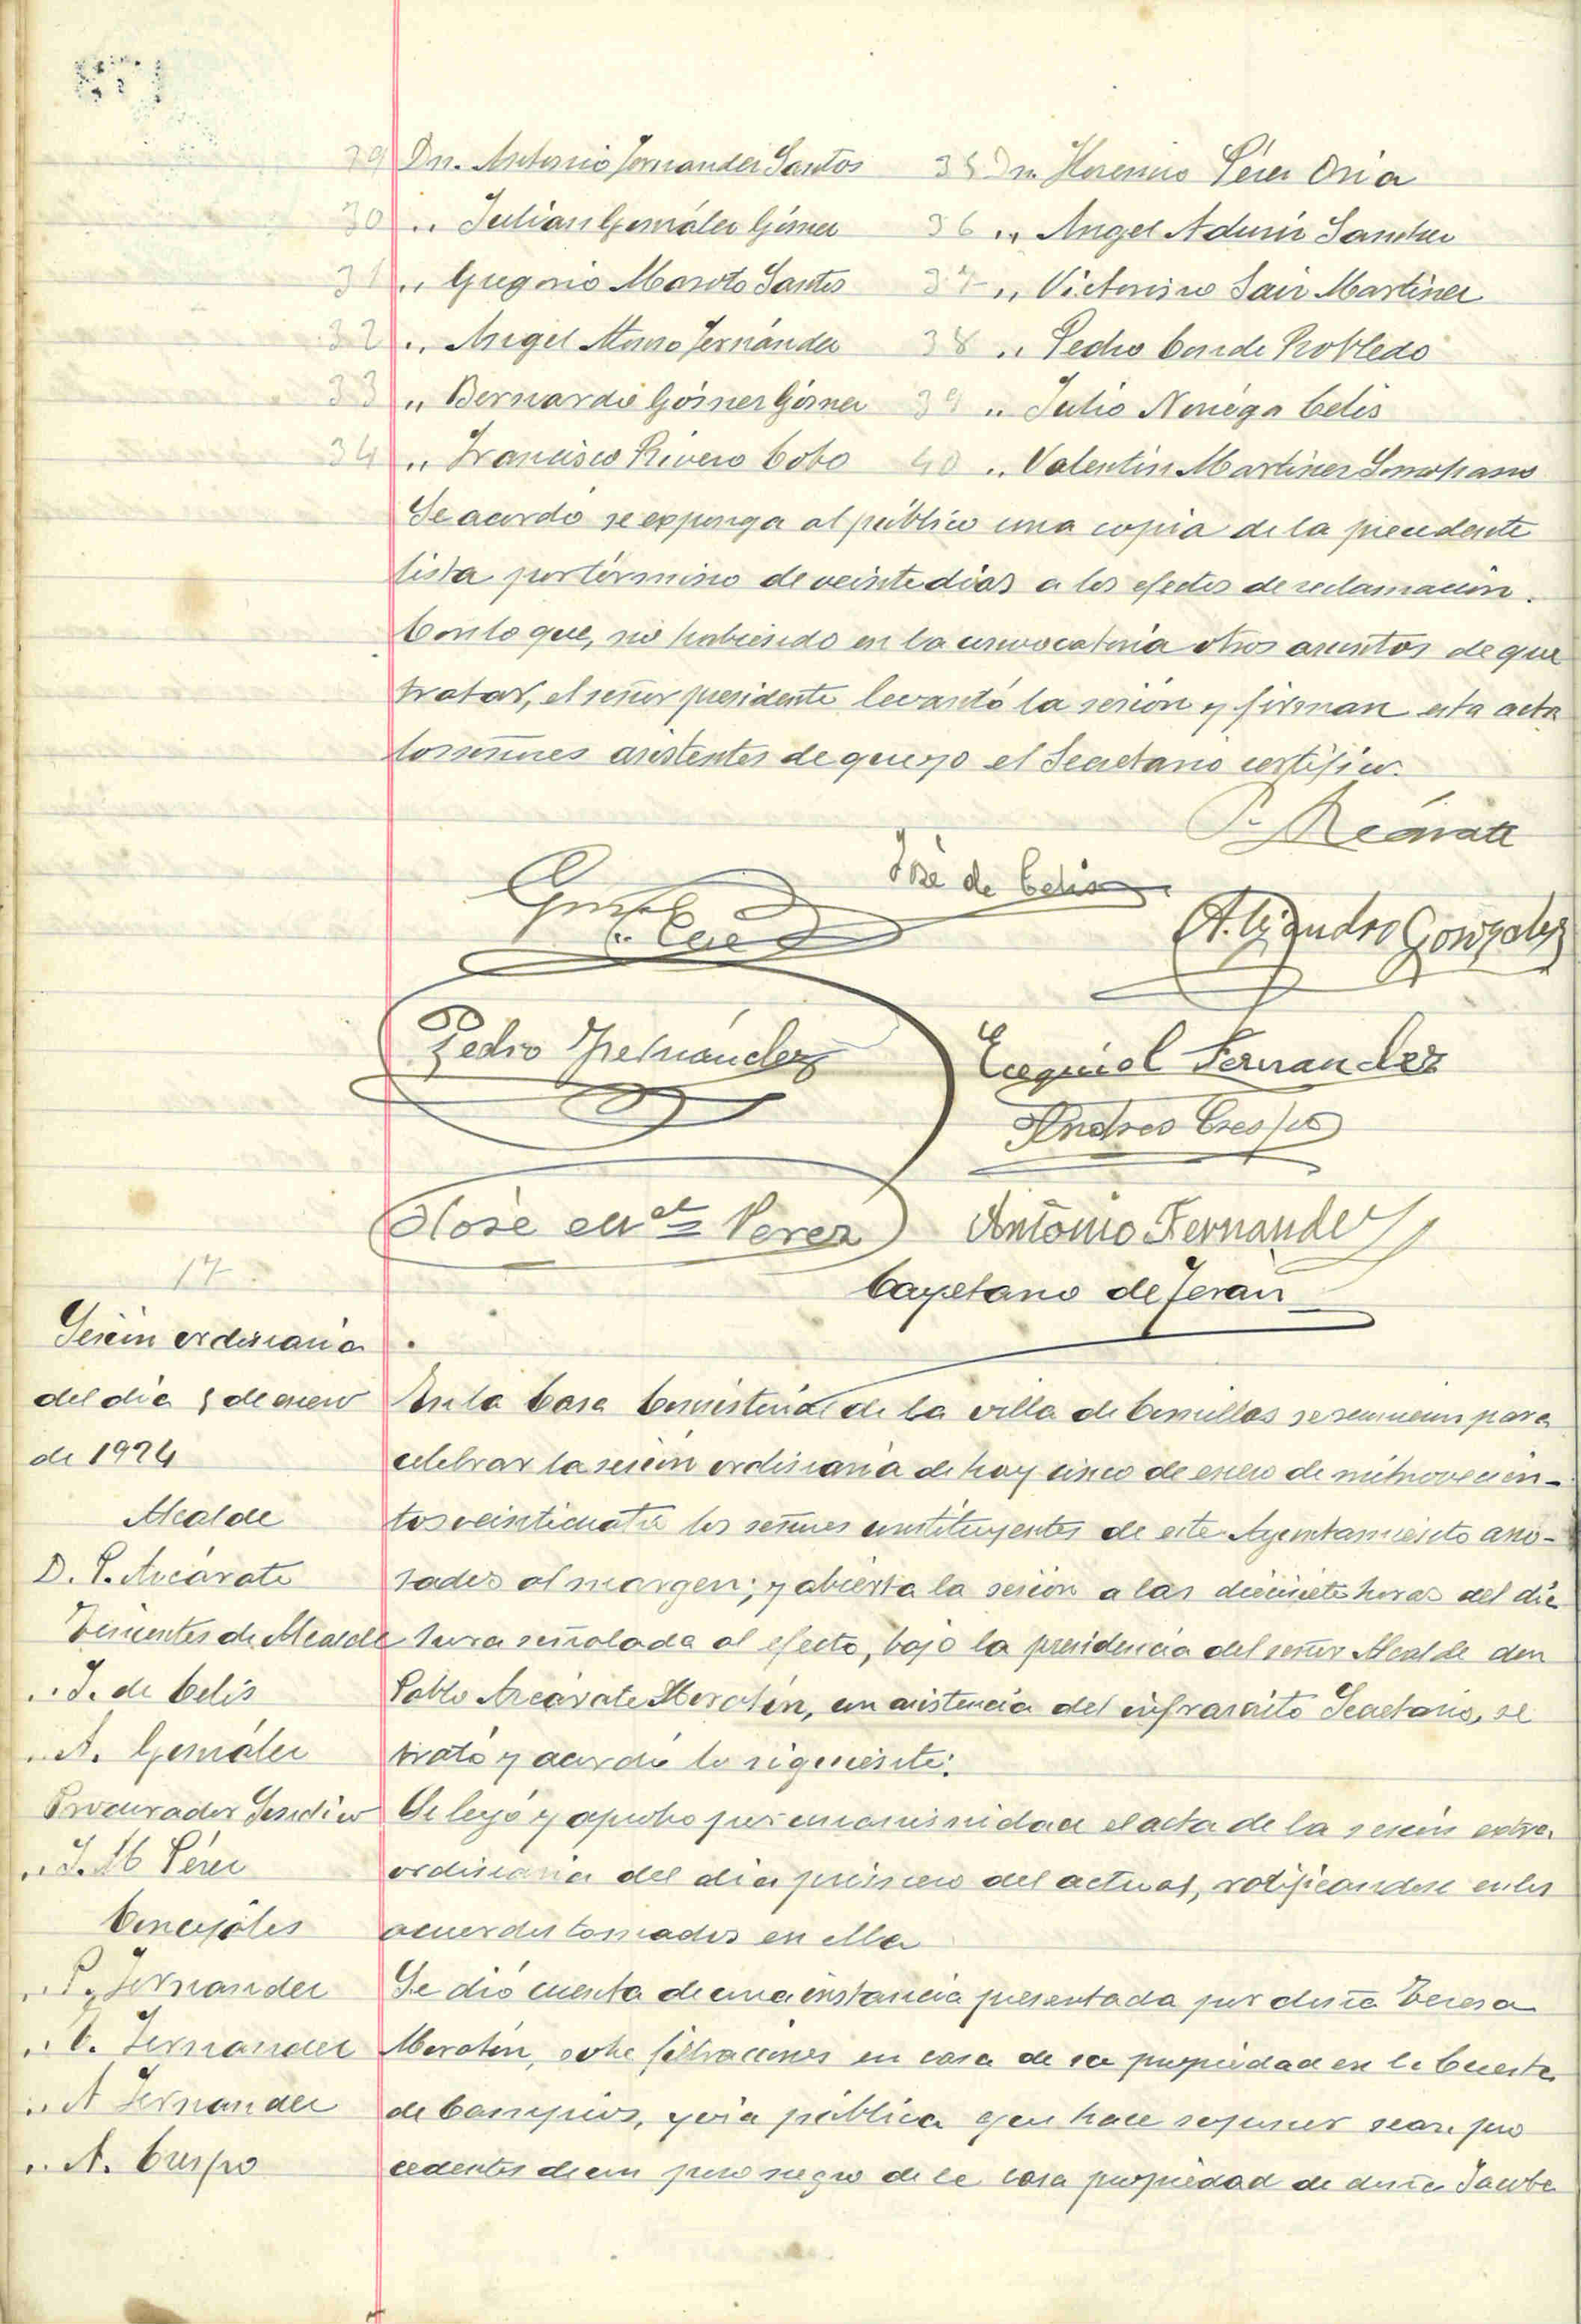 29 Dn. Antonio Fernandez Santos 35 Dn. Florencio Pérez Oria
30 " Julian González Gómez 36 " Angel Aduriz Sanchez
31 " Gregorio Maroto Santos 37 " Victorino Saiz Martinez
32 " Angel Fernández 38 " Pedro Conde Robledo
33 " Bernardo Gómez Gómez 39 " Julio Noriega Celis
34 " Francisco Rivero Cobo 40 " Valentin Martinez
Se acordó se exponga al público una copia de la precedente
lista por término de veinte dias a los efectos de reclamación.
Con lo que, no habiendo en la convocatoria otros asuntos de que
tratar, el señor presidente levantó la sesión y firman esta acta
los señores asistentes de que yo el Secretario certifico.
P. Azcárate
José de Celis
Alejandro Gonzalez
Pedro Fernández
Ezequiel Fernandez
Andres Crespo
José Ma Perez Antonio Fernandez
Cayetano de Teran
17
Sesión ordinaria
del dia 5 de enero
de 1924
Alcalde
D. P. Azcárate
Tenientes de Alcalde
" J. de Celis
" A. González
Procurador Sindico
" J. M Pérez
Concejales
" P. Fernandez
" E. Fernandez
" A Fernandez
" A. Crespo
En la Casa Consistorial de la villa de Comillas se reunieron para
celebrar la sesión ordinaria de hoy cinco de enero de mil novecien-
tos veinticuatro los señores constituyentes de este Ayuntamiento ano-
tados al margen; y abierta la sesión a las diecisiete horas del dia
hora señalada al efecto, bajo la presidencia del señor Alcalde don
Pablo Azcárate Moratin, con asistencia del infrascrito Secretario, se
trató y acordó lo siguiente:
Se leyó y aprobó por unanimidad el acta de la sesión extra-
ordinaria del dia primero del actual, ratificandose en los
acuerdos tomados en ella
Se dió cuenta de una instancia presentada por doña Teresa
Moratin, sobre filtraciones en casa de su propiedad en la Cuesta
de Campios, y via pública que hace suponer sean pro
cedentes de un pozo negro de la casa propiedad de doña Jacoba